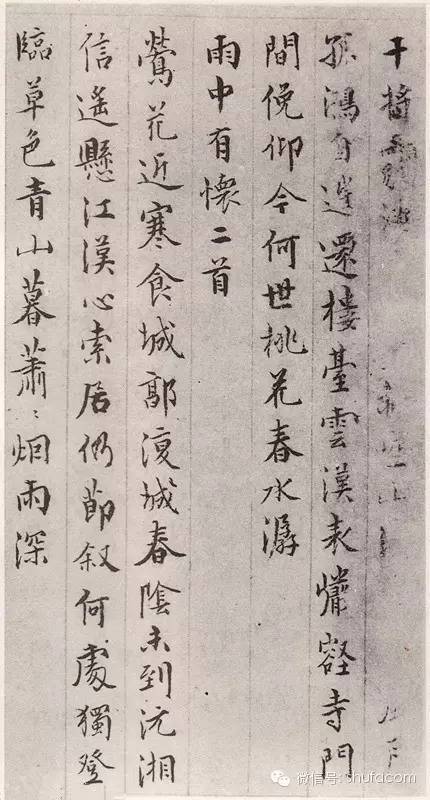 干將
孤鴻自還樓臺雲漢表壑寺門
間俛仰今何世桃花春水潺
雨中有懷二首
鶯花近寒食城郭復城春陰未到沅湘
信遙懸江漢心索居仍節叙何處獨登
臨草色青山暮蕭〻烟雨深
微信号: shufaorg